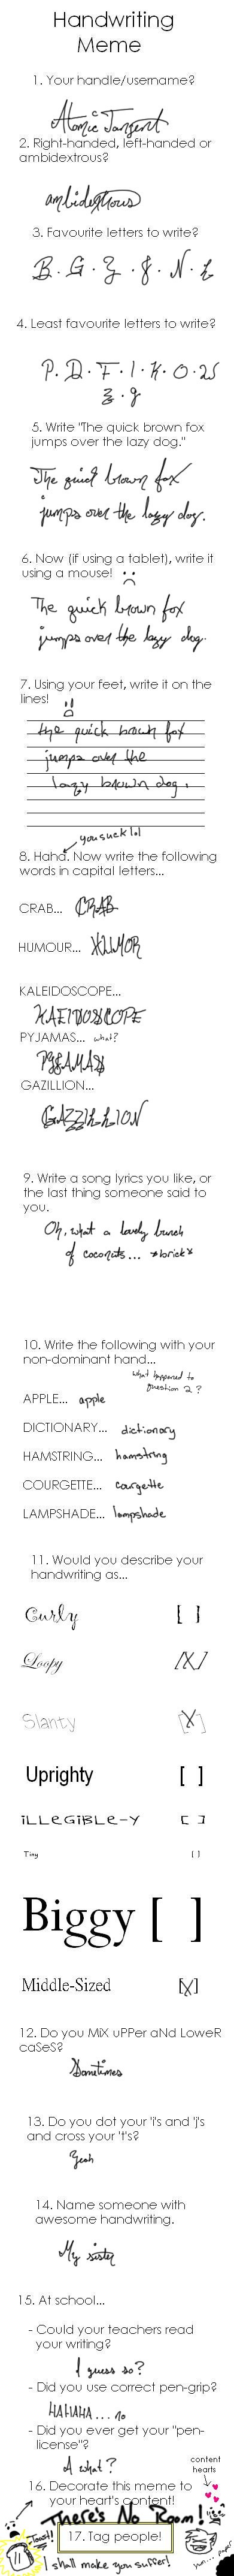 Handwriting
Meme
1. Your handle/username?
Atomic Tangent
2. Right-handed, left-handed or
ambidextrous?
ambidextrous
3. Favourite letters to write?
B · G · Z · g · N · L
4. Least favourite letters to write?
P · D · F · I · K · O · 25
z · g
5. Write "The quick brown fox
jumps over the lazy dog."
The quick brown fox
jumps over the lazy dog.
6. Now (if using a tablet), write it
using a mouse! :(
The quick brown fox
jumps over the lazy dog.
7. Using your feet, write it on the
lines!
the quick brown fox
jumps over the
lazy brown dog.
you suck lol
8. Haha. Now write the following
words in capital letters...
CRAB... CRAB
HUMOUR... HUMOR
KALEIDOSCOPE...
KAEIDOSCOPE
PYJAMAS... what?
PYJAMAS
GAZILLION...
GAZZILLION
9. Write a song lyrics you like, or
the last thing someone said to
you.
Oh, what a lovely bunch
of coconuts... *brick*
10. Write the following with your
non-dominant hand...
what happened to
question 2?
APPLE... apple
DICTIONARY... dictionary
HAMSTRING... hamstring
COURGETTE... courgette
LAMPSHADE... lampshade
11. Would you describe your
handwriting as...
Curly [ ]
Loopy [X]
Slanty [X]
Uprighty [ ]
iLLeGiBLe-Y [ ]
Tiny [ ]
Biggy [ ]
Middle-Sized [X]
12. Do you MiX uPPer aNd LoweR
caSeS?
Sometimes
13. Do you dot your 'i's and 'j's
and cross your 't's?
Yeah
14. Name someone with
awesome handwriting.
My sister
15. At school...
- Could your teachers read
your writing?
I guess so?
- Did you use correct pen-grip?
HAHAHA... no
- Did you ever get your "pen-
license"?
A what?
content
hearts
16. Decorate this meme to
your heart's content!
There's No Room!
17. Tag people!
I shall make you suffer!